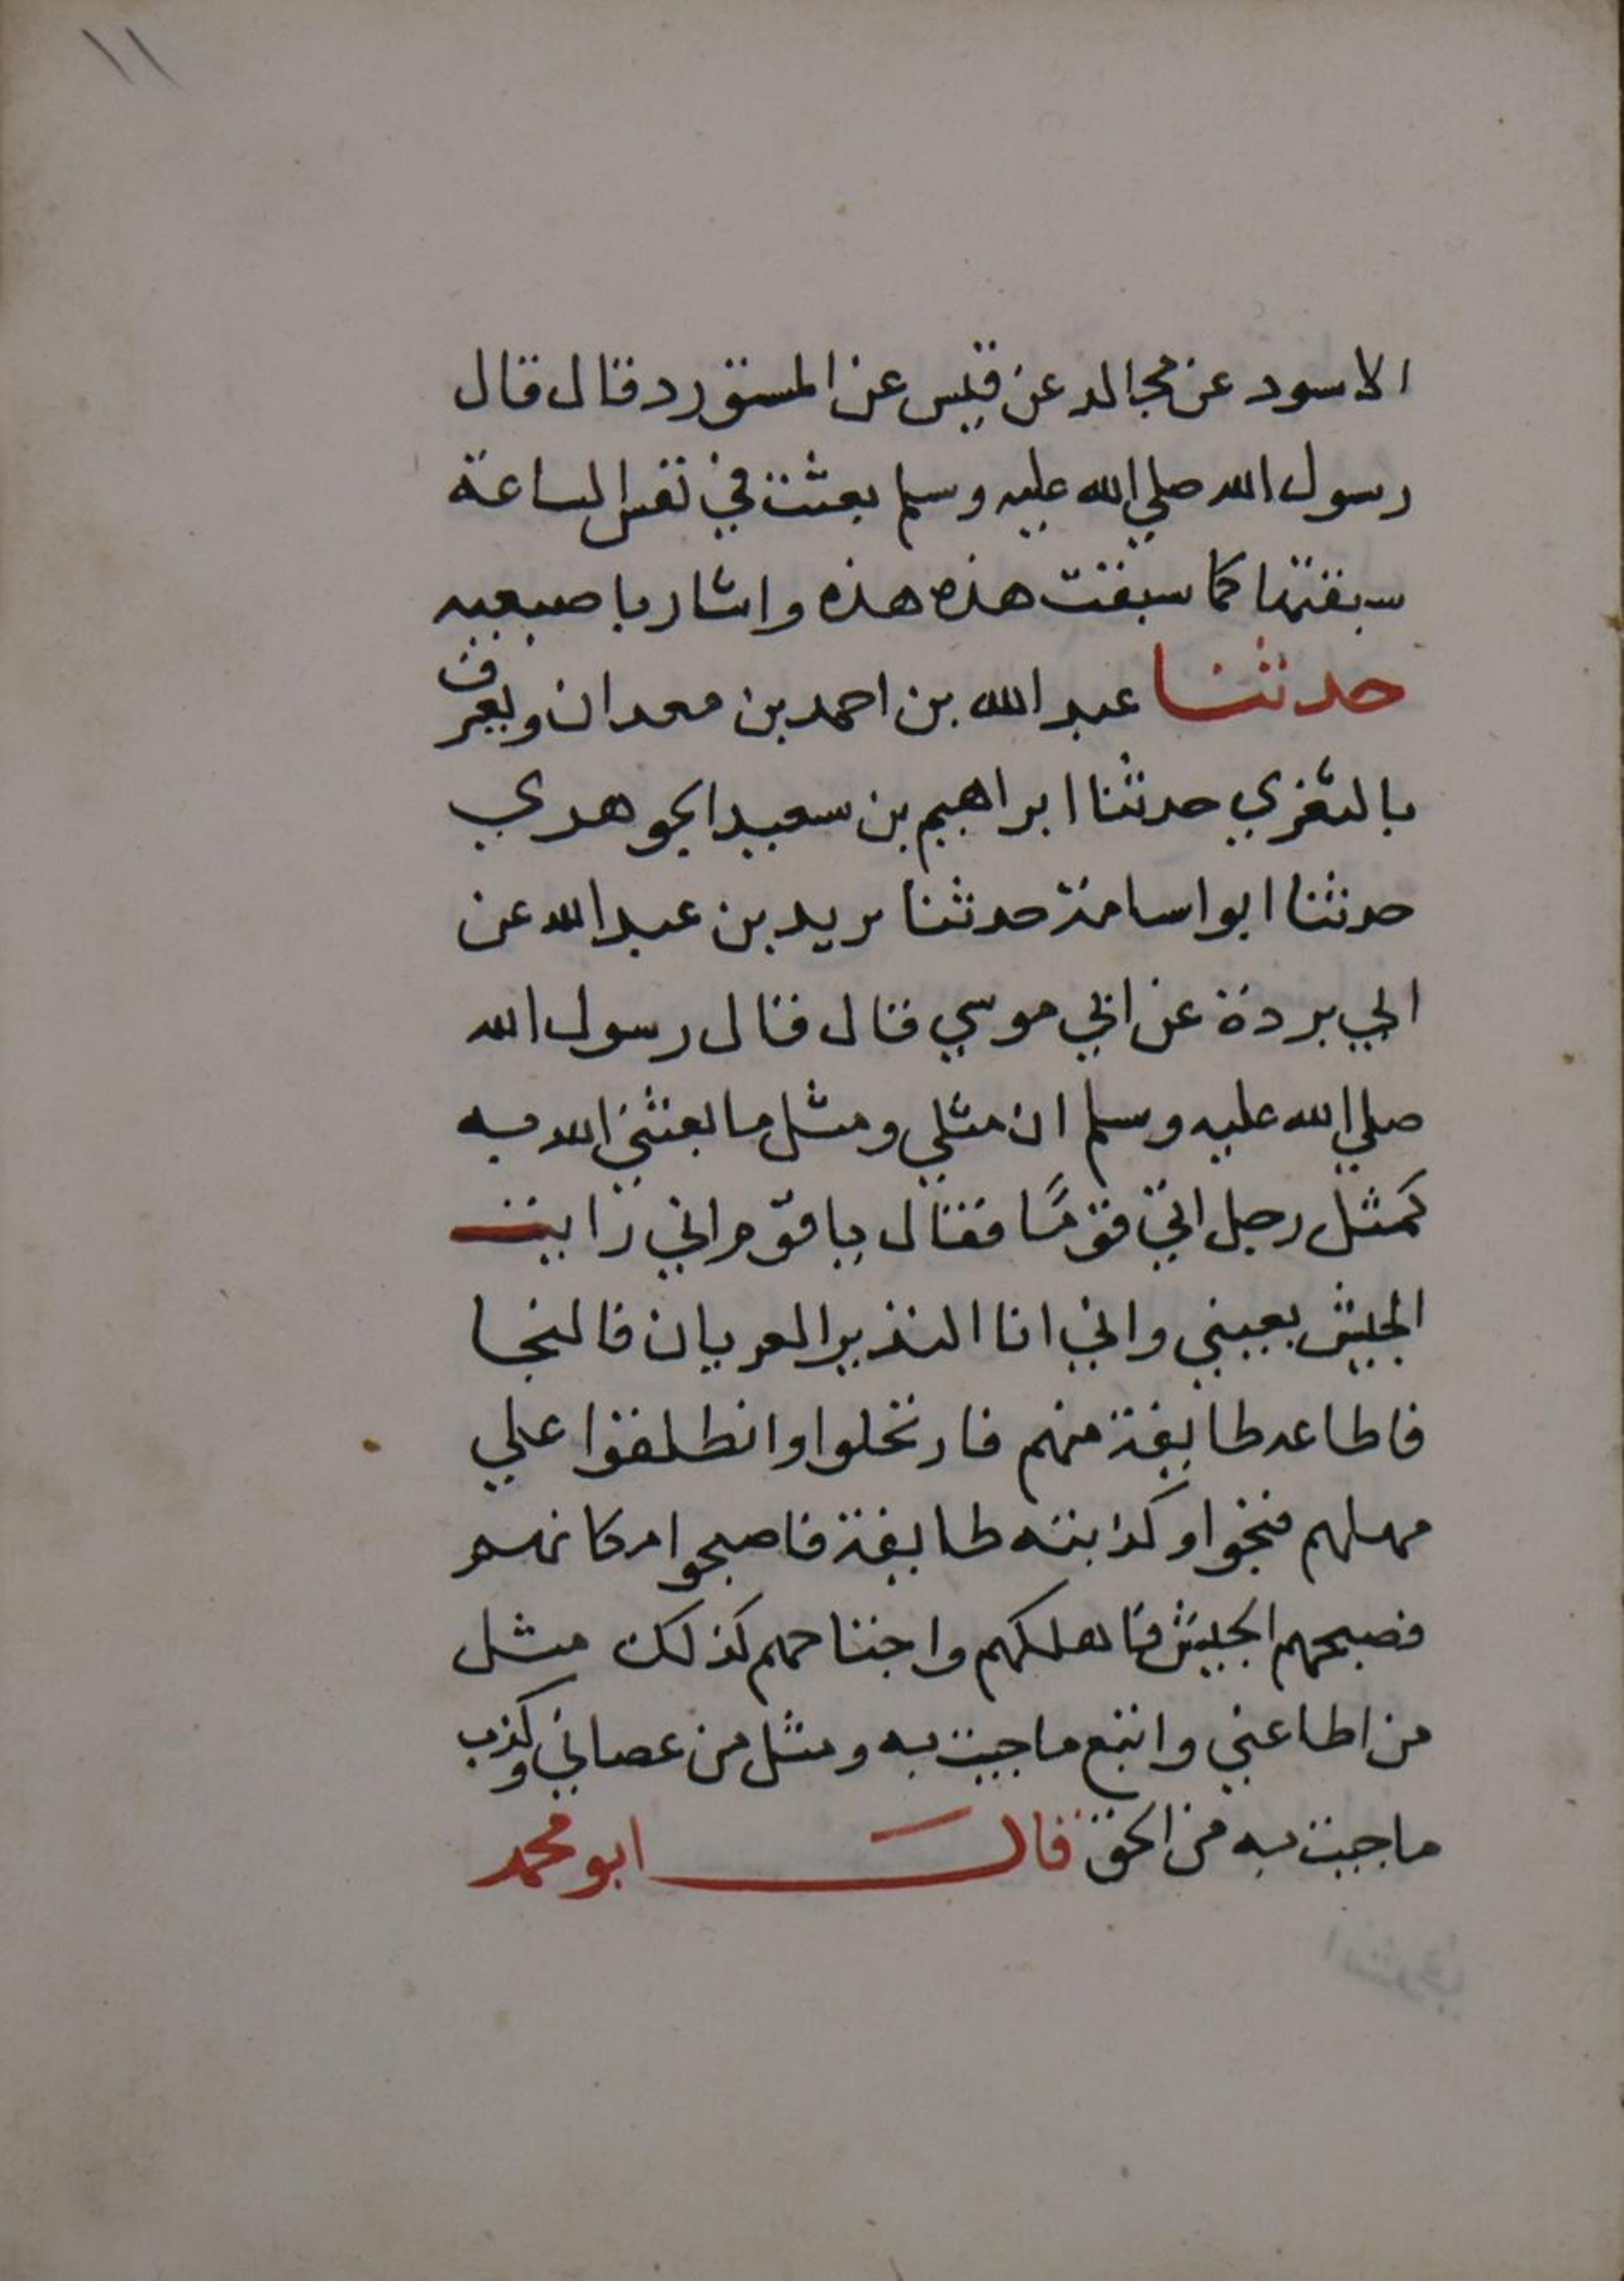 ١١
الاسود عن مجالد عن قيس عن المستورد قال قال
رسول الله صلي الله عليه وسلم بعثت في نفس الساعة
سبقتها كما سبقت هذه هذه واشار باصبعيه
حدثنا عبد الله بن احمد بن معدان ويعرف
بالغزي حدثنا ابراهيم بن سعيد الجوهري
حدثنا ابو اسامة حدثنا بريد بن عبد الله عن
ابي بردة عن ابي موسي قال قال رسول الله
صلي الله عليه وسلم ان مثلي ومثل ما بعثني الله به
كمثل رجل اتي قومًا فقال يا قوم اني رايت
الجيش بعيني واني انا النذير العريان فالنجا
فاطاعه طايفة منهم فارتحلوا وانطلقوا علي
مهلهم فنجوا وكذبته طايفة فاصبحوا مكانهم
فصبحهم الجيش فاهلكهم واجتاحهم كذلك مثل
من اطاعني واتبع ما جيت به ومثل من عصاني وكذب
ما جيت به من الحق قال ابو محمد